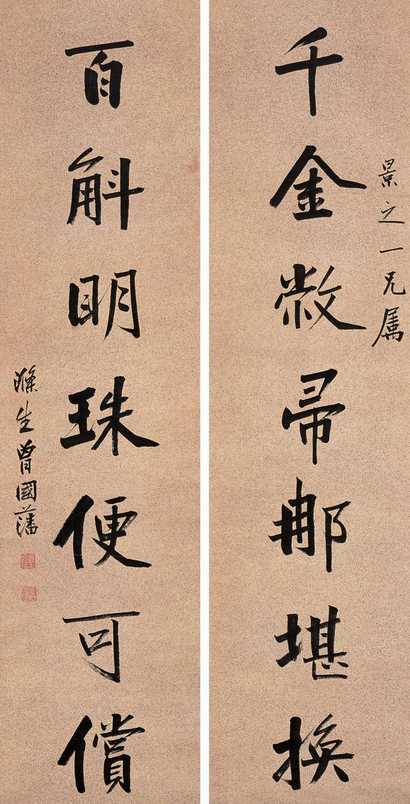 景之一兄属
千金敝帚那堪换
百斛明珠便可償
滌生曾國藩